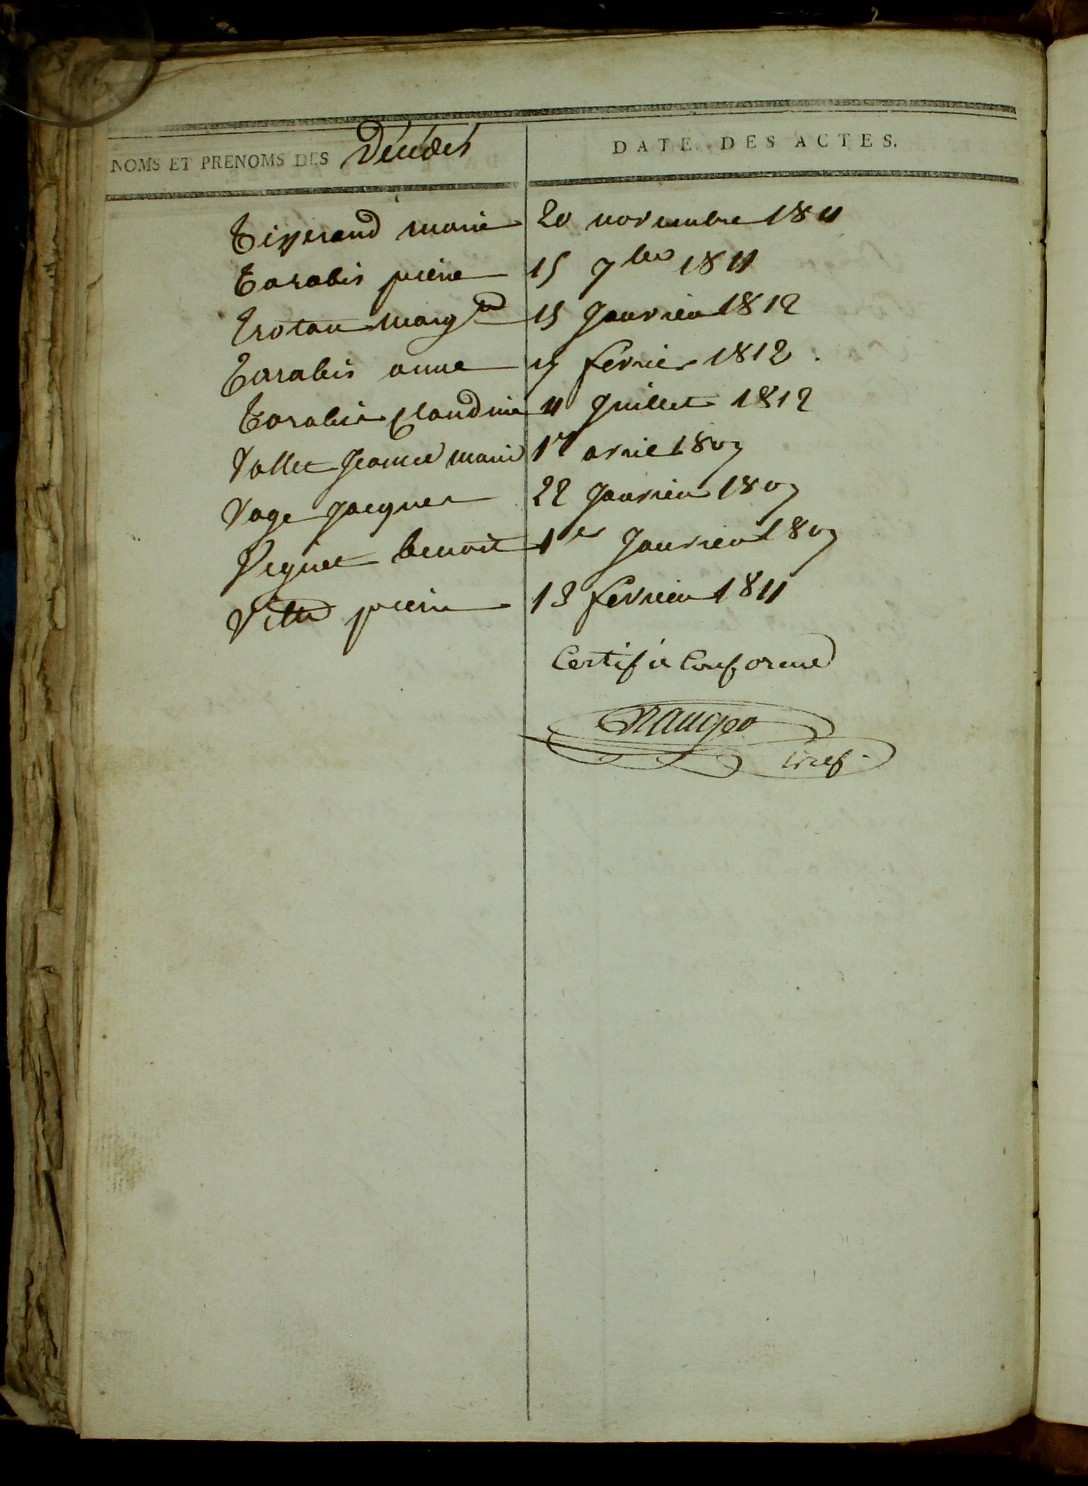 NOMS ET PRENOMS DES Décédés
DATE DES ACTES.
Tisserand marie 20 novembre 1811
Tarabis pierre 15 7bre 1811
Trotau Marg.te 15 Janvier 1812
Tarabis anne 19 fevrier 1812.
Tarabis Claudine 11 Juillet 1812
Vallet Jeanne marie 1er avril 1809
Vage Jacques 22 Janvier 1809
benoit 1er Janvier 1809
pierre 13 fevrier 1811
Certifié Conforme
Gref.